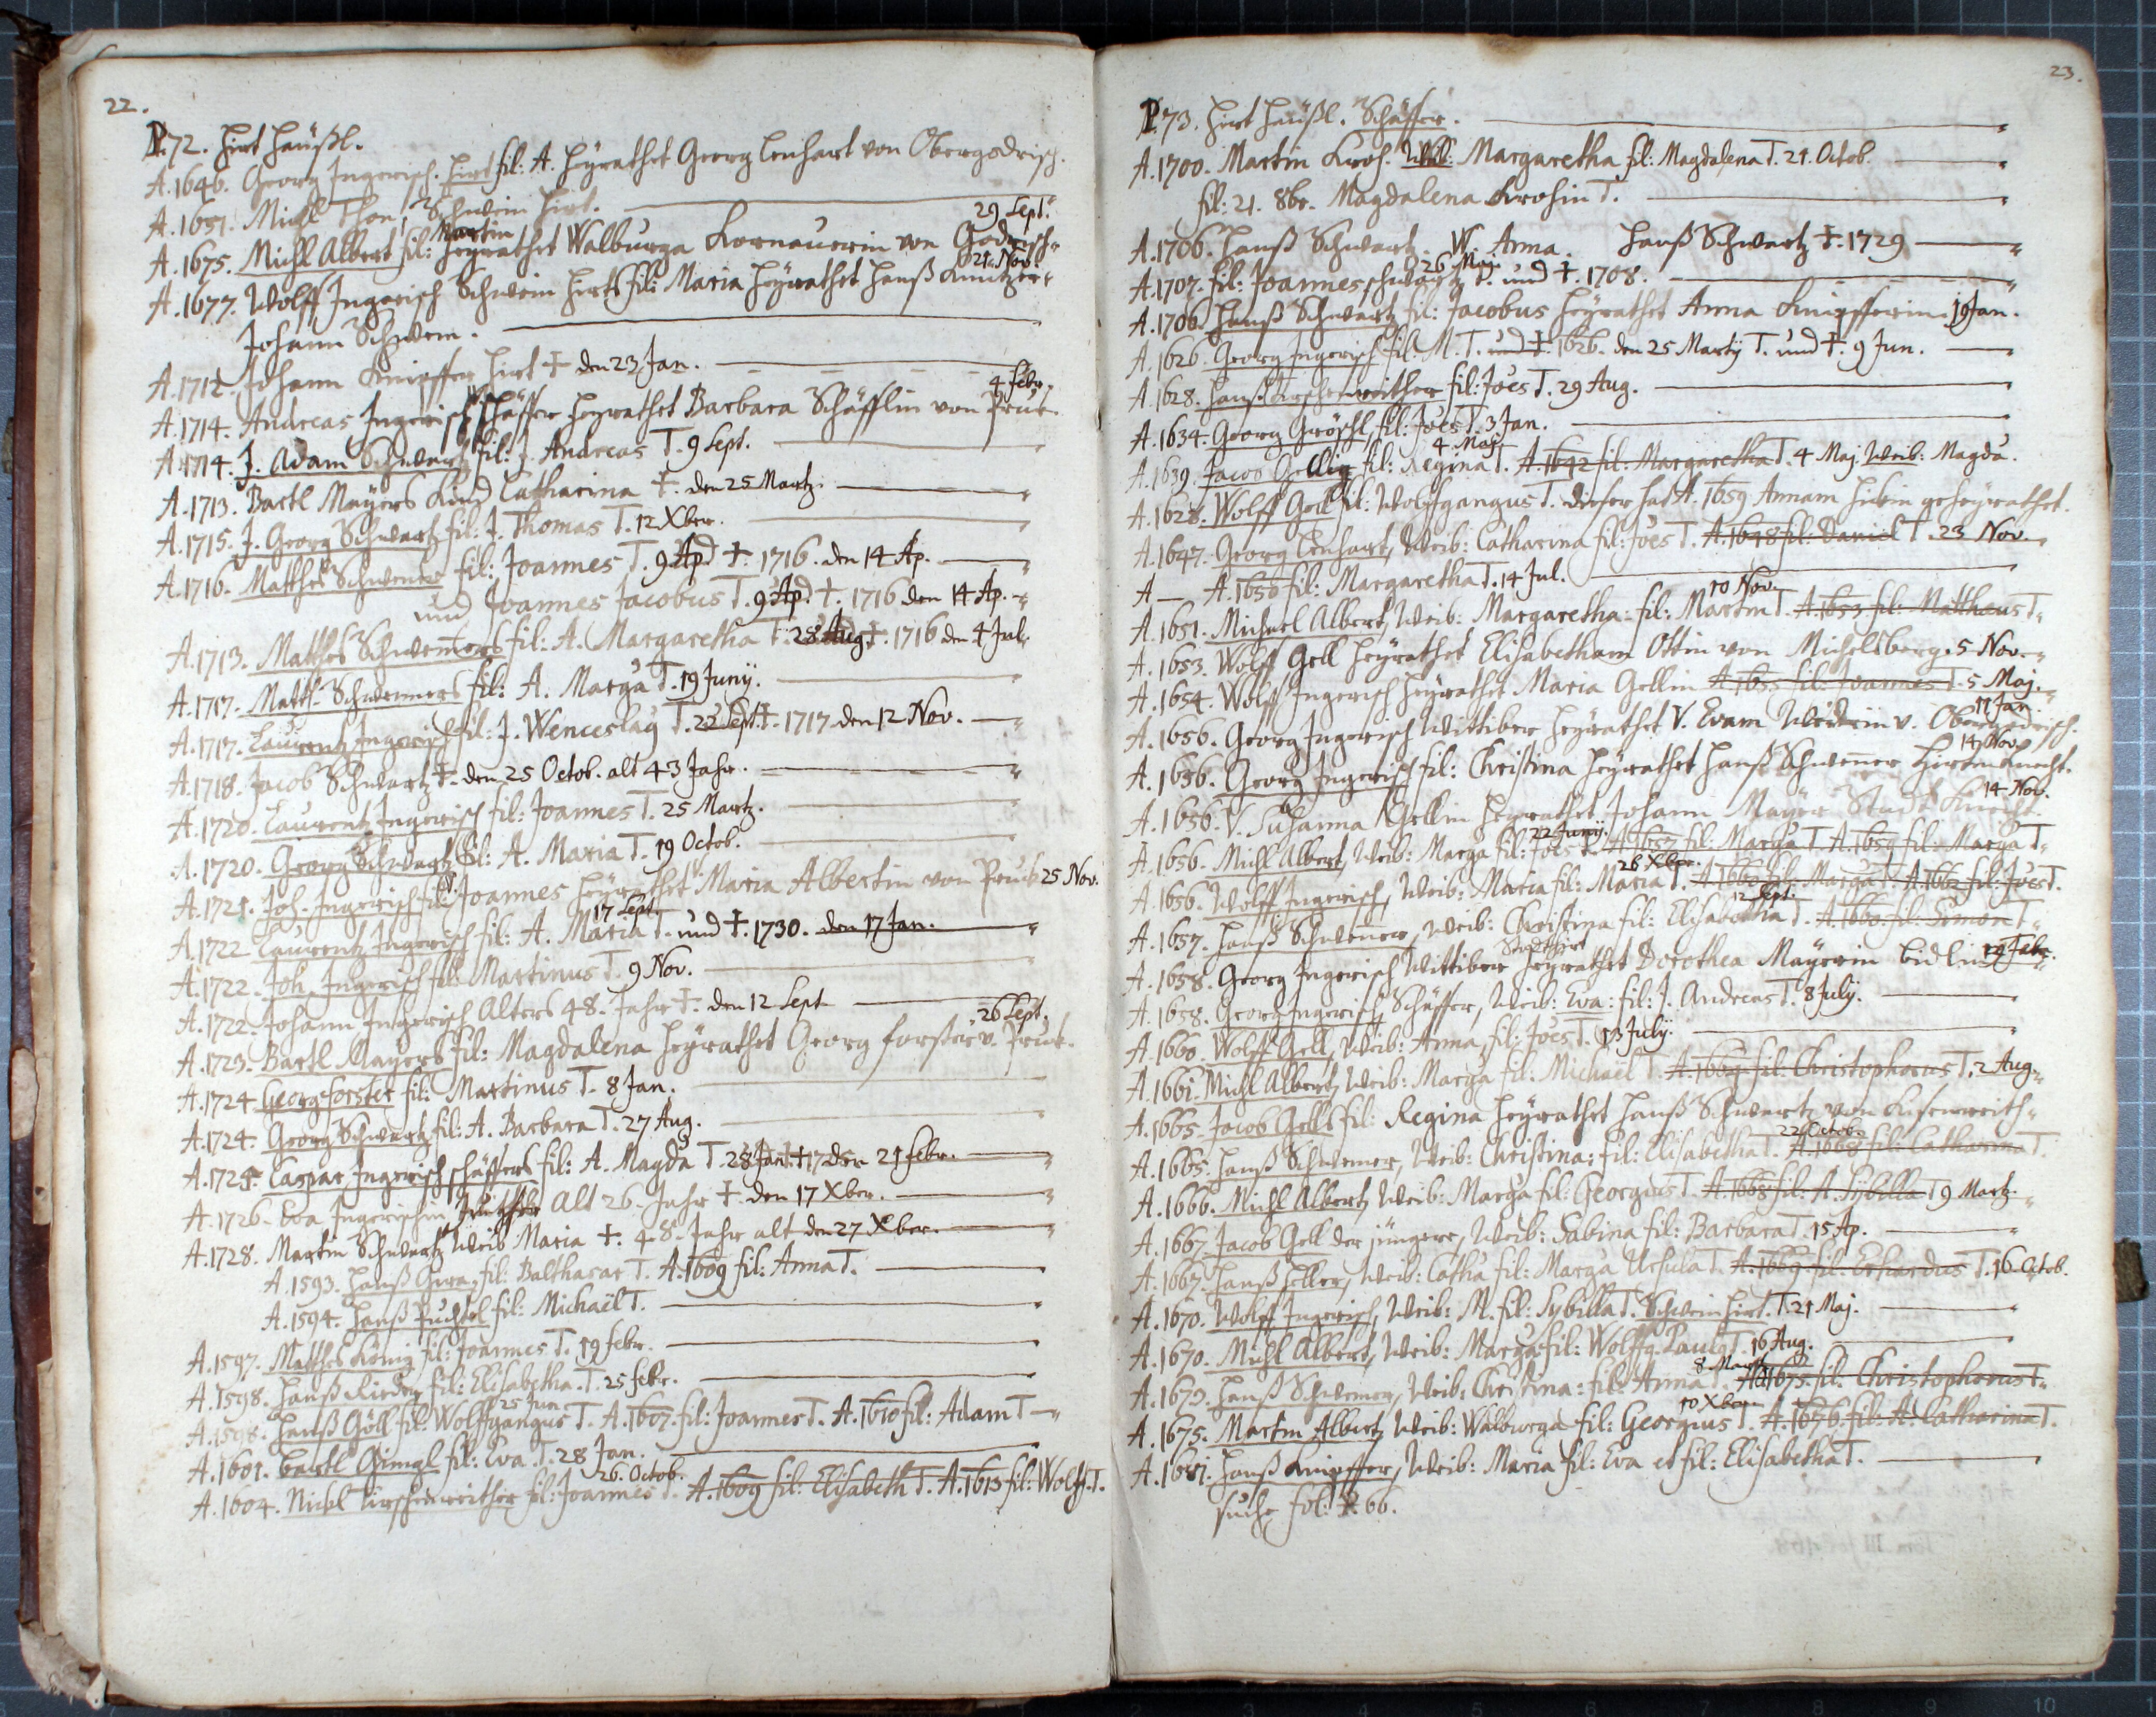 22.
P. 72. Hirt Häußl.
A. 1646. Georg Ingerisch. Hirt fil: A. Heÿrathet Georg Lenhart von Obergodrisch.
A. 1651. Michl Thon, Schwein Hirt.
29 Sept.
A. 1675. Michl Albert fil: Martin heÿrathet Walburga Kornauerin von Godrisch
21. Nov.
A. 1677. Wolff Ingerisch Schwein Hirts fil: Maria heÿrathet Hanß
Johann Schwem.
A. 1712. Johann Knipffer Hirt † den 23 Jan.
4 Febr.
A. 1714. Andreas Ingerisch Schäffer heÿrathet Barbara Schäfflin von Pruk.
A. 1714. J. Adam Schwartz fil: J. Andreas T. 9 Sept.
A. 1713. Bartl Maÿers Kind Catharina †. den 25 Martz.
A. 1715. J. Georg Schwartz fil: J. Thomas T. 12 Xber.
A. 1716. Mathes Schwemer fil: Joannes T. 9 Ap. †. 1716. den 14 Ap.
und Joannes Jacobus T. 9 Ap. †. 1716 den 14 Ap.
A. 1713. Mathes Schwemers fil: A. Margaretha T. 28 Aug †. 1716 den 4 Jul.
A. 1717. Math. Schwemers fil: A. Marga T. 19 Junÿ.
A. 1717. Laurentz Ingerisch fil: J. Wenceslaꝰ T. 22 Sept. †. 1717 den 12 Nov.
A. 1718. Jacob Schwartz †. den 25 Octob. alt 43 Jahr.
A. 1720. Laurentz Ingerisch fil: Joannes T. 25 Martz.
A. 1720. Georg Schwartz fil: A. Maria T. 19 Octob.
A. 1721. Joh. Ingerisch fil: Joannes heÿrathet V. Maria Albertin von Pruk 25 Nov.
17 Sept.
A. 1722 Laurentz Ingerisch fil: A. Maria T. und †. 1730. den 17 Jan.
A. 1722. Joh. Ingerisch fil: Martinus T. 9 Nov.
A. 1722. Johann Ingerisch Alters 48. Jahr †. den 12 Sept
26 Sept.
A. 1723. Bartl Maÿers fil: Magdalena heÿrathet Georg Forster v. Pruk.
A. 1724. Georg Forster fil: Martinus T. 8 Jan.
A. 1724. Georg Schwartz fil: A. Barbara T. 27 Aug.
A. 1724. Caspar Ingerisch schäffers fil: A. Magda T. 28 Jan. † den 21 Febr.
A. 1726. Eva Ingerischin Alt 26. Jahr † den 17 Xber.
A. 1728. Martin Schwartz Weib Maria †. 48. Jahr alt den 27 Xber.
A. 1593. Hanß fil: Balthasar T. A. 1609 fil: Anna T.
A. 1594. Hanß Puchtel fil: Michaël T.
A. 1597. Mathes König fil: Joannes T. 19 Febr.
A. 1598. Hanß Rieder fil: Elisabetha T. 25 Febr.
25 Jun
A. 1598. Hanß Göll fil: Wolffgangus T. A. 1607. fil: Joannes T. A. 1610 fil: Adam T
A. 1601. Bartl Gimgl fil: Eva T. 28 Jan.
26. Octob.
A. 1604. Nickl Kirschenreither fil: Joannes T. A. 1609 fil: Elisabeth T. A. 1613 fil: Wolff. T.
23.
P. 73. Hirt Häußl. Schäffer.
A. 1700. Martin Kroh. Weib: Margaretha fil: Magdalena T. 21. Octob.
fil: 21. 8br. Magdalena Krohin T.
A. 1706. Hanß Schwartz. W. Anna. Hanß Schwartz †. 1729
26 Maj.
A. 1707. fil: Joannes schwartz T. und †. 1708.
A. 1706. Hanß Schwartz fil: Jacobus heÿrathet Anna Knipfferin. 19 Jan.
A. 1626. Georg Ingerisch fil: M. T. und †. 1626. den 25 Martÿ T. und †. 9 Jun.
A. 1628. Hanß Kirschenreither fil: Joes T. 29 Aug.
A. 1634. Georg Gröschl, fil: Joes T. 3 Jan.
4 Maj.
A. 1639. Jacob Gellig fil: Regina T. A. 1642 fil: Margaretha T. 4 Maj. Weib: Magda.
A. 1628. Wolff Gell fil: Wolffgangus T. dieser hat A. 1659 Annam geheÿrathet.
A. 1647. Georg Lenhart, Weib: Catharina fil: Joes T. A. 1648 fil: Daniel T. 23 Nov.
A — A. 1650 fil: Margaretha T. 14 Jul.
10 Nov.
A. 1651. Michael Albert, Weib: Margaretha: fil: Martin T. A. 1653 fil: Mattheus T.
A. 1653. Wolff Gell heÿrathet Elisabetham Ottin von Michelsberg. 5 Nov.
A. 1654. Wolff Ingerisch heÿrathet Maria Gellin A. 1655 fil: Joannes T. 5 Maj.
17 Jan.
A. 1656. Georg Ingerisch Wittiber heÿrathet V. Evam v. Obergodrisch.
14 Nov.
A. 1656. Georg Ingerisch fil: Christina heÿrathet Hanß Schwemer Hirtenknecht.
14 Nov.
A. 1656. V. Susanna Gellin heÿrathet Johann Maÿer Stadt Knecht.
22 Junÿ.
A. 1656. Michl Albert, Weib: Marga fil: Joes T. A. 1657 fil: Marga T. A. 1659 fil: Marga T.
26 Xber.
A. 1656. Wolff Ingerisch, Weib: Maria fil: Maria T. A. 1660 fil: Marga T. A. 1662 fil: Joes T.
12 Sept.
A. 1657. Hanß Schwemer, Weib: Christina fil: Elisabetha T. A. 1660. fil: Simon T
Stadthirt
A. 1658. Georg Ingerisch Wittiber heÿrathet Dorothea Maÿerin Febr.
A. 1658. Georg Ingerisch, Schäffer, Weib: Eva: fil: J. Andreas T. 8 Julÿ.
A. 1660. Wolff Gell, Weib: Anna, fil: Joes T. 13 Julÿ.
A. 1661. Michl Albert, Weib: Marga fil: Michaël T. A. 1664 fil: Christophorus T. 2 Aug.
A. 1665. Jacob Gells fil: Regina heÿrathet Hanß Schwartz von
22 Octob.
A. 1665. Hanß Schwemer, Weib: Christina: fil: Elisabetha T. A. 1668 fil: Catharina T.
A. 1666. Michl Albert, Weib: Marga fil: Georgius T. A. 1668 fil: A. Sybilla T 9 Martz
A. 1667. Jacob Gell der jüngere, Weib: Sabina fil: Barbara T. 15 Ap.
A. 1667. Hanß Heller, Weib: Catha fil: Marga Ursula T. A. 1669 fil: Erhardus T. 16. Octob.
A. 1670. Wolff Ingerisch, Weib: M. fil: Sybilla T. Schwein Hirt. T. 21 Maj.
A. 1670. Michl Albert, Weib: Marga: fil: Wolffg. Paulꝰ T. 16 Aug.
8 Martz
A. 1673. Hanß Schwemer, Weib: Christina: fil: Anna T. A. 1675 fil: Christophorus T.
10 Xber.
A. 1675. Martin Albert, Weib: Walburga fil: Georgius T. A. 1676. fil: A. Catharina T.
A. 1681. Hanß Knipffer, Weib: Maria fil: Eva et fil: Elisabetha T.
suche fol: P. 66.